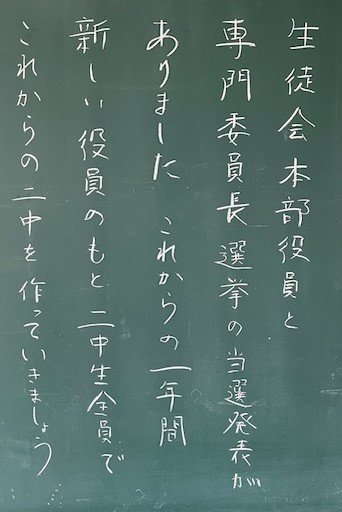 生徒会本部役員と
専門委員長選挙の当選発表が
ありました これからの一年間
新しい役員のもと二中生全員で
これからの二中を作っていきましょう